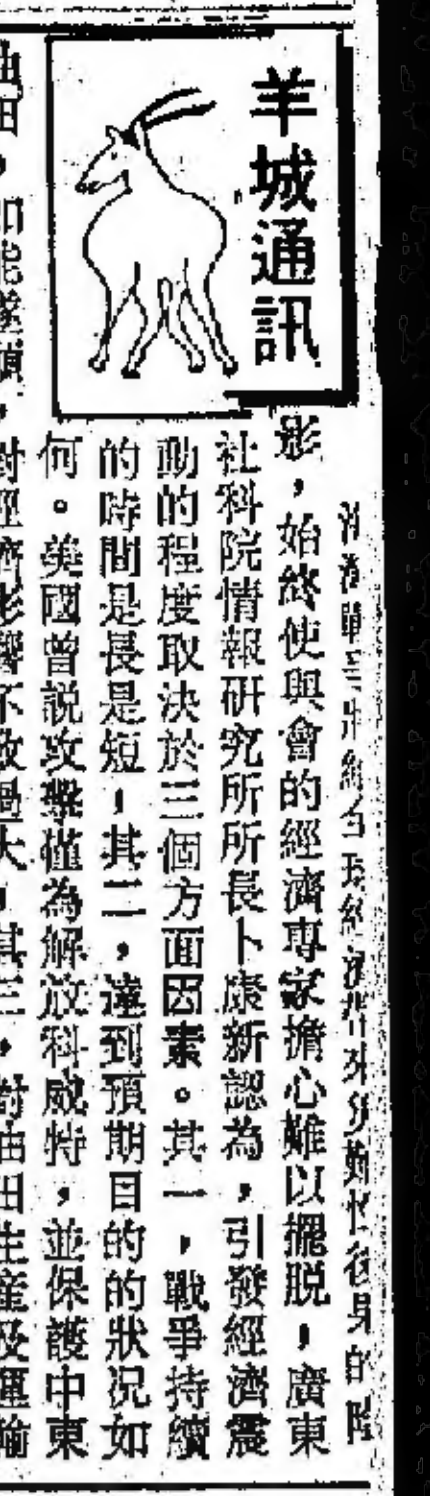 羊城通訊
的陰
影，始終使與會的經濟專家擔心難以擺脱，廣東
社科院情報研究所所長卜康新認為，引發經濟震
動的程度取決於三個方面因素。其一，戰爭持續
的時間是長是短，其二，達到預期目的的狀况如
何。美國曾説攻擊僅為解放科威特，並保護中東
油田，如能遂願，對經濟影響不致過大，其三，對油田生産及運輸